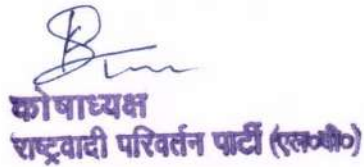 कोषाध्यक्ष
राष्ट्रवादी परिवर्तन पार्टी (एल०बी०)